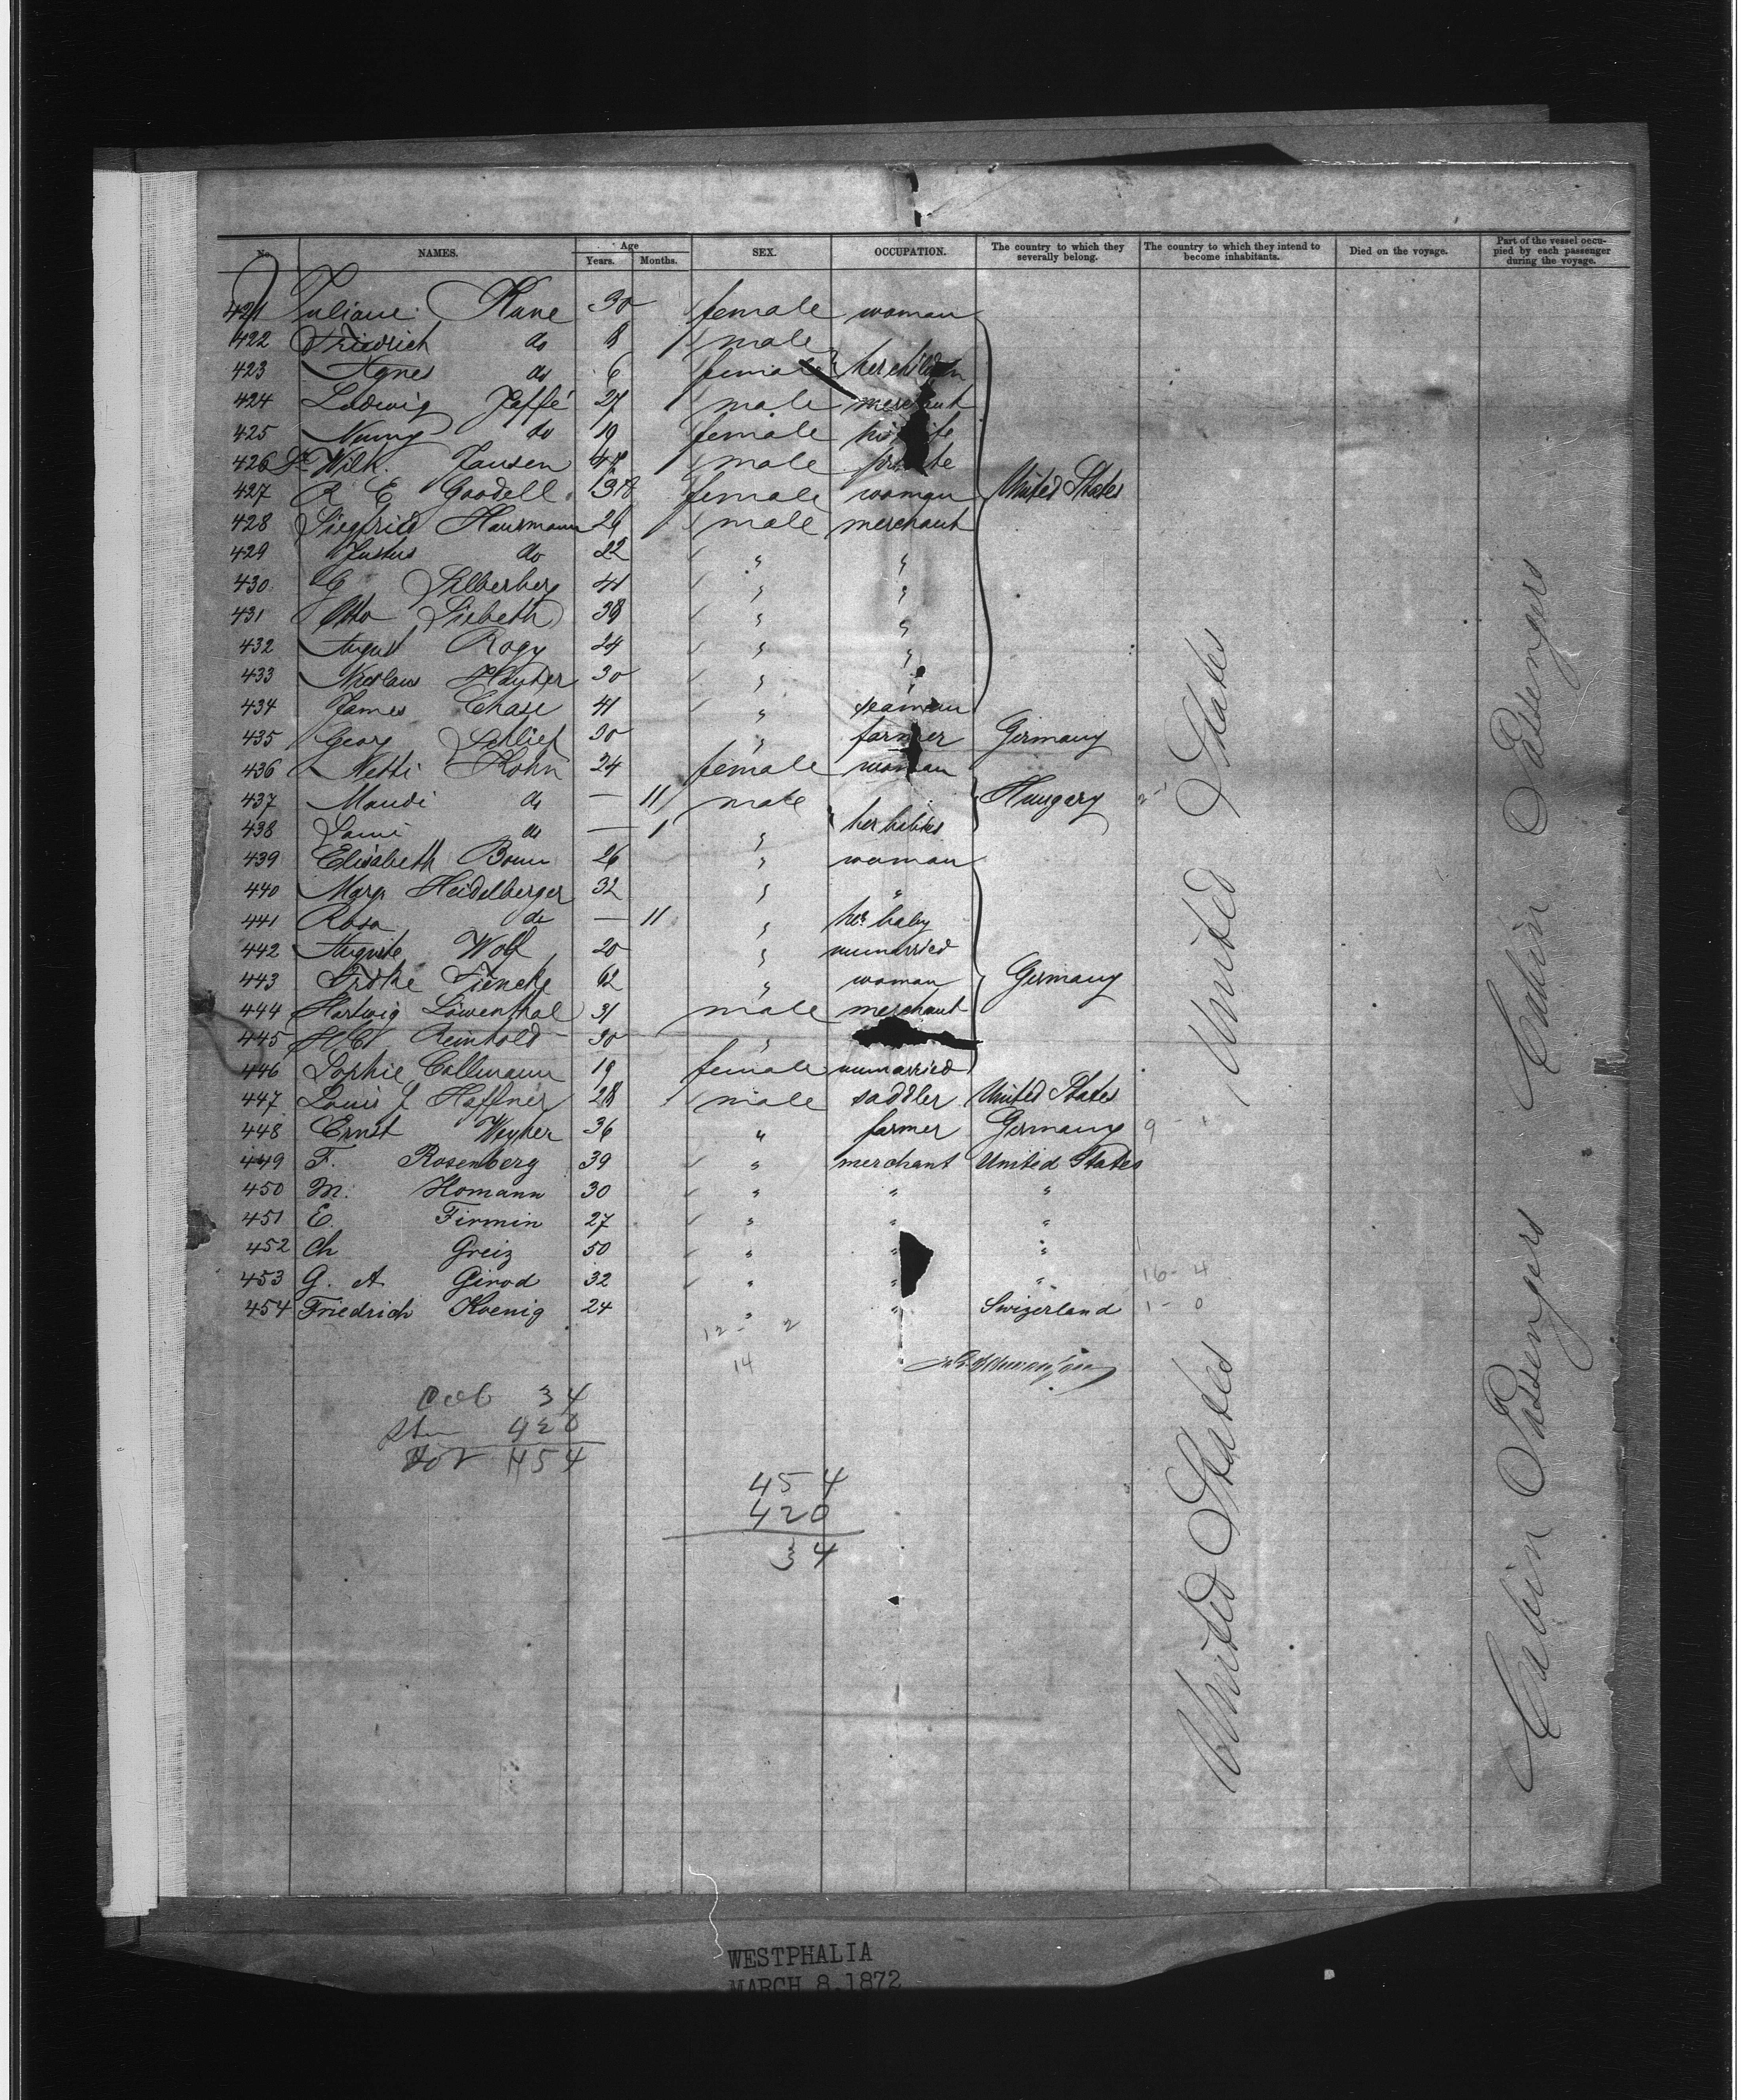 No. NAMES. Age Years. Months. SEX. OCCUPATION. The country to which they severally belong. The country to which they intend to become inhabitants. Died on the voyage. Part of the vessel occupied by each passenger during the voyage.
421 Juliane 30 female woman
422 Friedrich do 8 male
423 Agnes do 6 female her children
424 Ludwig Jaffé 27 male merchant
425 do 19 female
426 Dr Wilh. Jansen male
427 R E Goodell female woman United States
428 Siegfried Hausmann 26 male merchant
429 Justus do 22 " "
430 G Silberberg 41 " "
431 Otto Siebeth 38 " "
432 August Rogy 24 " "
433 Nicolaus 30 " "
434 James Chase 41 " seaman
435 Georg Schlief 30 " farmer Germany
436 Netti Kohn 24 female woman
437 do — 11 male Hungary
438 do — 1 " her babies
439 Elisabeth 26 " woman
440 Marg. Heidelberger 32 " "
441 Rosa do — 11 " her baby
442 Auguste Wolf 20 " unmarried
443 62 " woman Germany
444 Hartwig Löwenthal 31 male merchant
445 Reinhold 30 "
446 Sophie Collmann 19 female unmarried
447 Louis J Haffner 28 male saddler United States
448 Ernst Weyher 36 " farmer Germany 9
449 F. Rosenberg 39 " merchant United States
450 M. Homann 30 " " "
451 E. Firmin 27 " " "
452 Ch Greiz 50 " " "
453 G. A Girod 32 " " " 16 - 4
454 Friedrich Koenig 24 " " Swizerland 1 - 0
12 - 2
14
United States
Cabin Passengers
United States
Cabin Passengers
34
420
454
454
420
34
WESTPHALIA
MARCH 8, 1872